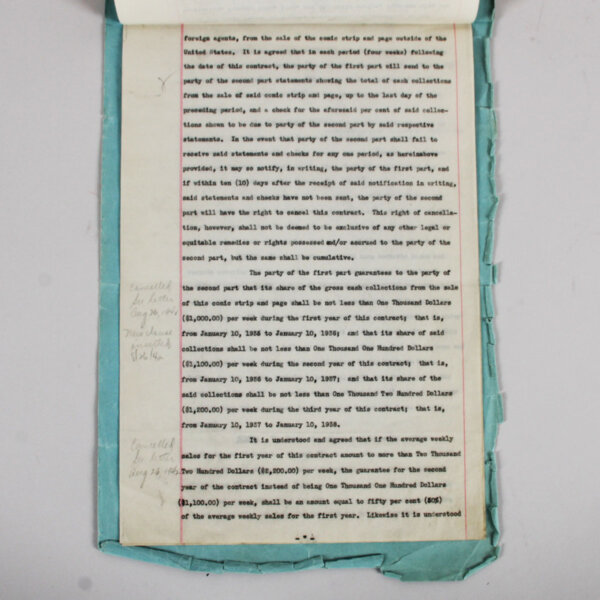 foreign agents, from the sale of the comic strip and page outside of the
United States. It is agreed that in each period (four weeks) following
the date of this contract, the party of the first part will send to the
party of the second part statements showing the total of cash collections
from the sale of said comic strip and page, up to the last day of the
preceding period, and a check for the aforesaid per cent of said collec-
tions shown to be due to party of the second part by said respective
statements. In the event that party of the second part shall fail to
receive said statements and checks for any one period, as hereinabove
provided, it may so notify, in writing, the party of the first part, and
if within ten (10) days after the receipt of said notification in writing,
said statements and checks have not been sent, the party of the second
part will have the right to cancel this contract. This right of cancella-
tion, however, shall not be deemed to be exclusive of any other legal or
equitable remedies or rights possessed and/or accrued to the party of the
second part, but the same shall be cumulative.
The party of the first part guarantees to the party of
the second part that its share of the gross cash collections from the sale
of this comic strip and page shall be not less than One Thousand Dollars
($1,000.00) per week during the first year of this contract; that is,
from January 10, 1935 to January 10, 1936; and that its share of said
collections shall be not less than One Thousand One Hundred Dollars
($1,100.00) per week during the second year of this contract; that is,
from January 10, 1936 to January 10, 1937; and that its share of the
said collections shall be not less than One Thousand Two Hundred Dollars
($1,200.00) per week during the third year of this contract; that is,
from January 10, 1937 to January 10, 1938.
It is understood and agreed that if the average weekly
sales for the first year of this contract amount to more than Two Thousand
Two Hundred Dollars ($2,200.00) per week, the guarantee for the second
year of the contract instead of being One Thousand One Hundred Dollars
($1,100.00) per week, shall be an amount equal to fifty per cent (50%)
of the average weekly sales for the first year. Likewise it is understood
Cancelled
See letter
Aug 26,
New clause
Cancelled
See letter
Aug 26,